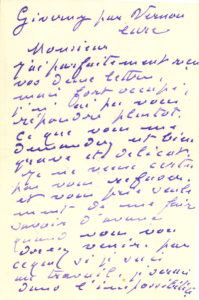 Giverny par Vernon
Eure
Monsieur
j'ai parfaitement reçu
vos deux lettres,
mais fort occupé,
je n'ai pu vous
répondre plutot.
Ce que vous me
demandez est bien
grave et délicat
Je ne veux certes
pas vous refuser
et vous prie seule
ment de me faire
savoir d'avance
quand vous
venir. par
ce que si j'étais
au travail, je serais
dans l'impossibilité